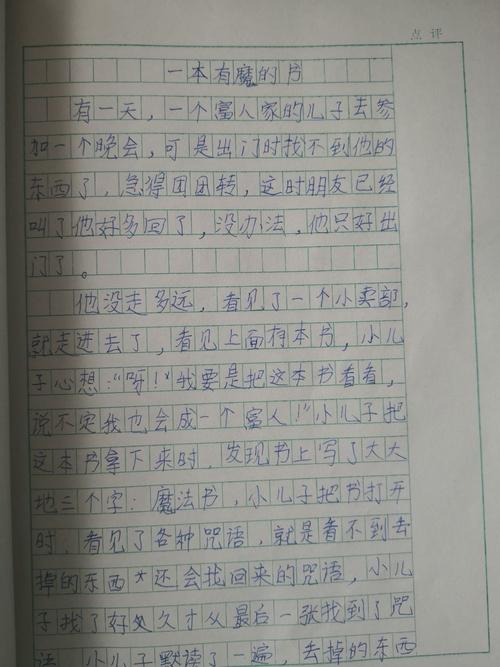 点评
一本有魔的书
有一天，一个富人家的儿子去参
加一个晚会，可是出门时找不到他的
东西了，急得团团转，这时朋友已经
叫了他好多回了，没办法，他只好出
门了。
他没走多远，看见了一个小卖部，
就走进去了，看见上面存本书，小儿
子心想："呀！"我要是把这本书看看，
说不定我也会成一个富人！"小儿子把
这本书拿下来时，发现书上写了大大
地三个字：魔法书，小儿子把书打开
时，看见了各种咒语，就是看不到去
掉的东西*还会找回来的咒语，小儿
子找了好久才从最后一张找到了咒
语，小儿子默读了一遍，去掉的东西